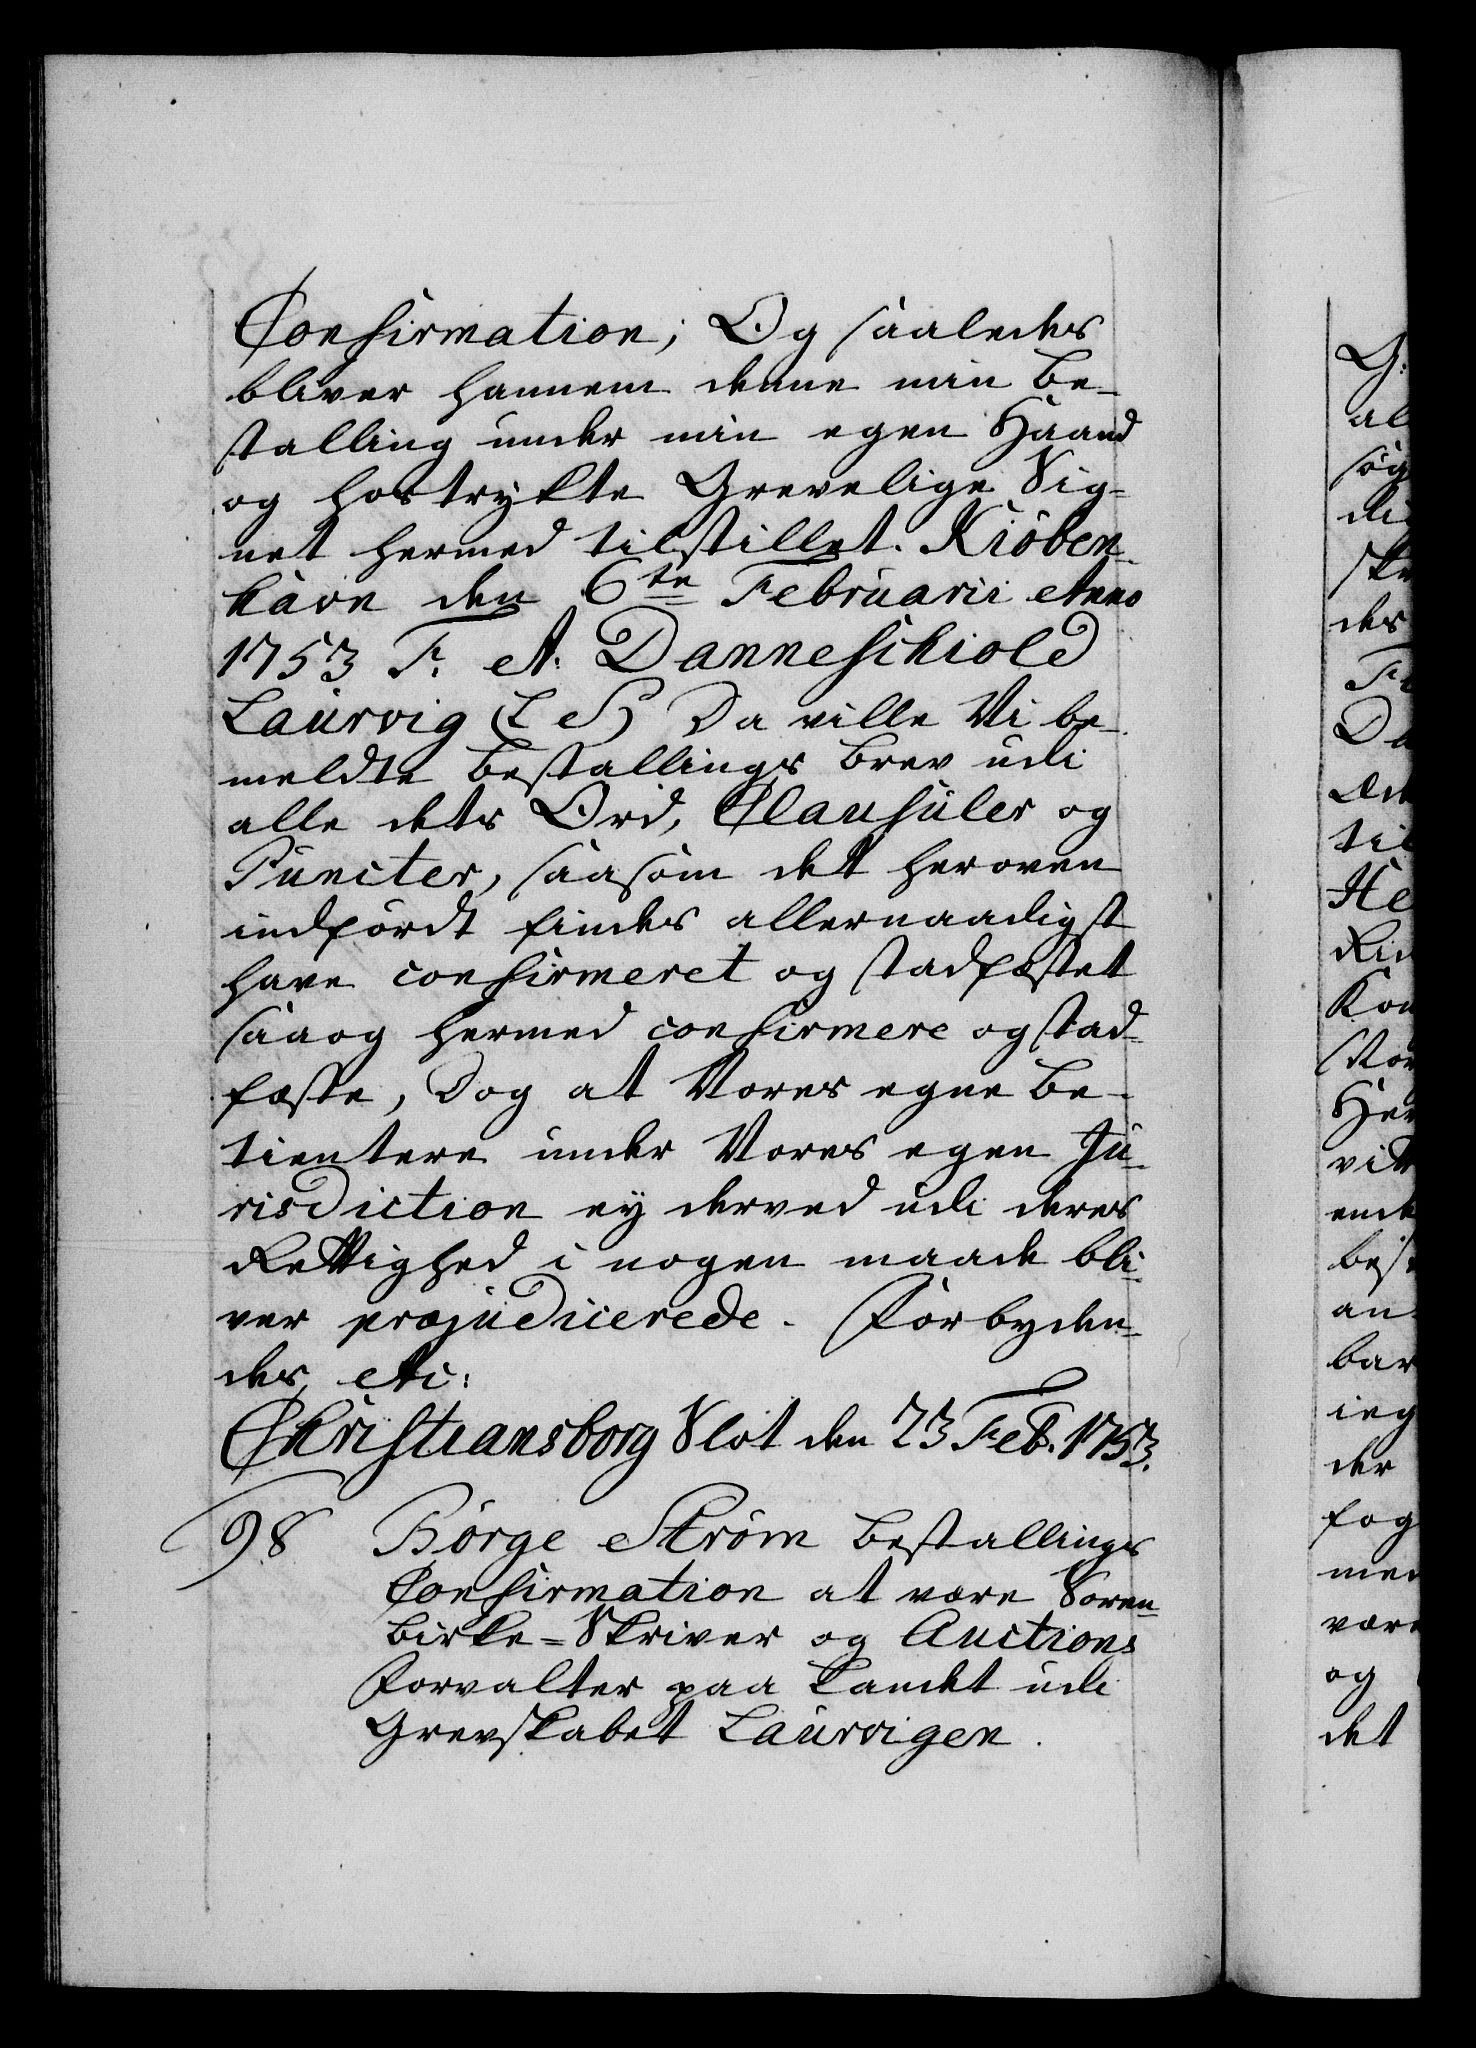 Confirmation; Og saaledes
bliver hannem denne min Be-
stalling under min egen Haand
og hostrykte Grevelige Sig-
net hermed tilstillet. Kiöben-
havn den 6te Februarii Anno
1753 F. A. Danneschiold
Laurvig (L S) Da ville Vi be-
meldte Bestallings Brev udi
alle dets Ord, Clausuler og
Puncter, saasom det heroven
indfört findes allernaadigst
have confirmeret og stadfæstet
saa og hermed confirmere og stad-
fæste, Dog at Vores egne Be-
tientere under Vores egen Ju-
risdiction ey derved udi deres
Rettighed i nogen maade bli-
ver præjudicerede. Forbyden-
des etc:
Christiansborg Slot den 23 Feb. 1753.
98 Börge Ström Bestallings
Confirmation at være Soren-
Birke-Skriver og Auctions
Forvalter paa Landet udi
Grevskabet Laurvigen.
G:
al
søg
di
skr
des
Fr
Da
til
He
Rid
Kon
Her
vit
ende
best
an
bar
ieg
der
fog
med
være
og
det